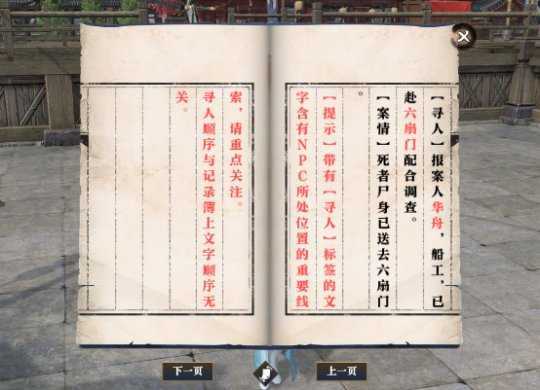 【寻人】报案人华舟，船工，已
赴六扇门配合调查。
【案情】死者尸身已送去六扇门
。
【提示】带有【寻人】标签的文
字含有NPC所处位置的重要线
索，请重点关注。
寻人顺序与记录簿上文字顺序无
关。
下一页
上一页